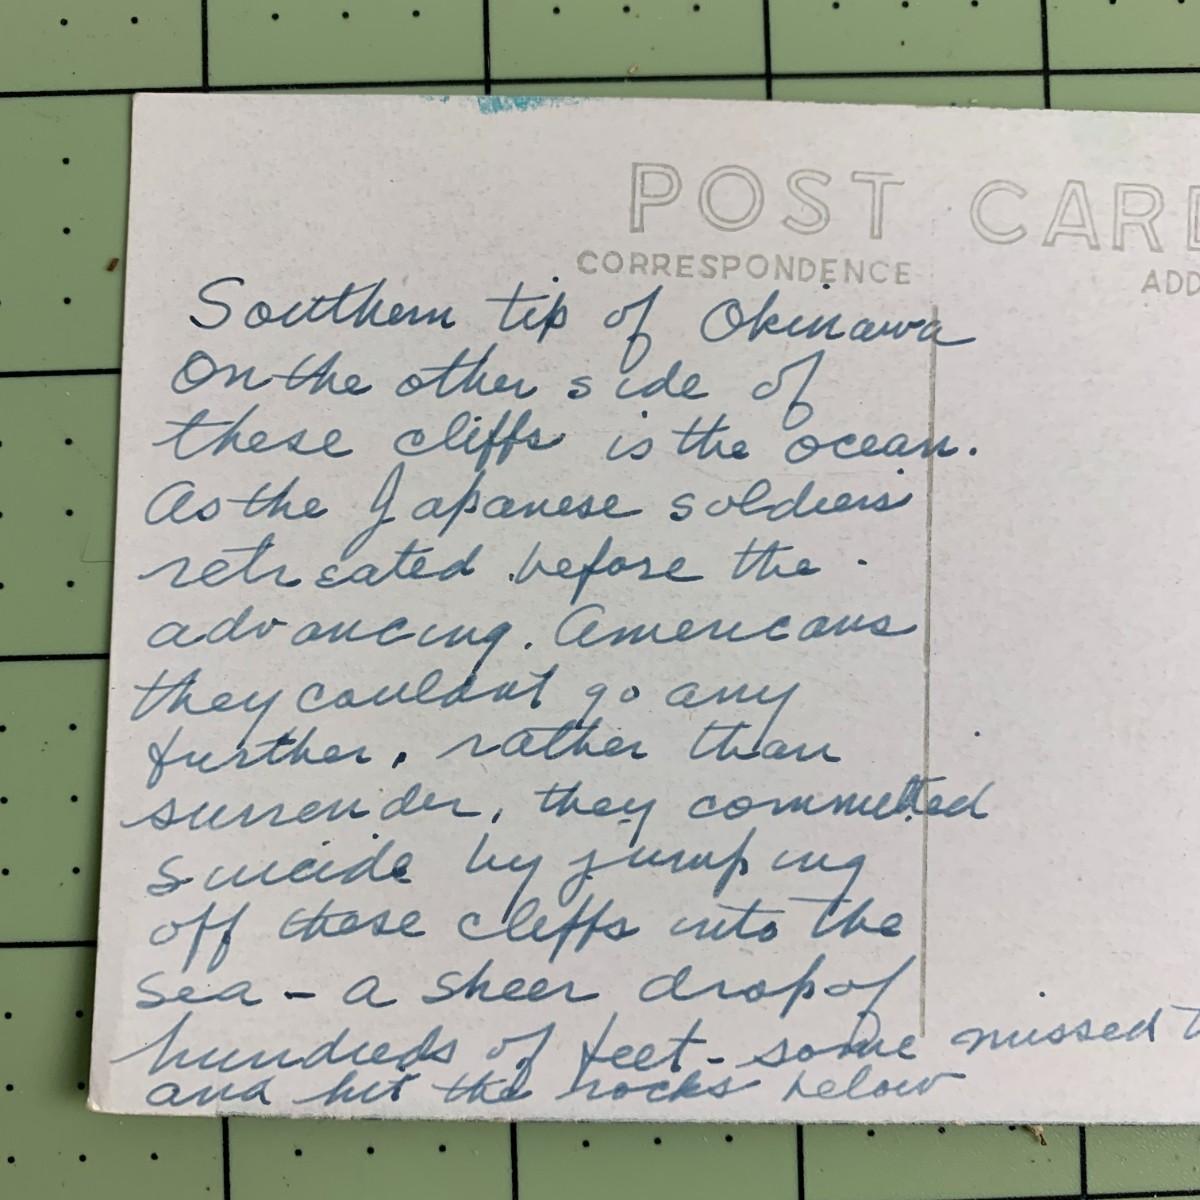 POST CARD
CORRESPONDENCE ADD
Southern tip of Okinawa
On the other side of
these cliffs is the ocean.
As the Japanese soldiers
retreated before the
advancing. Americans
they couldnt go any
further. rather than
surrender, they committed
suicide by jumping
off these cliffs into the
sea - a sheer drop of
hundreds of feet - some missed
and hit the rocks below